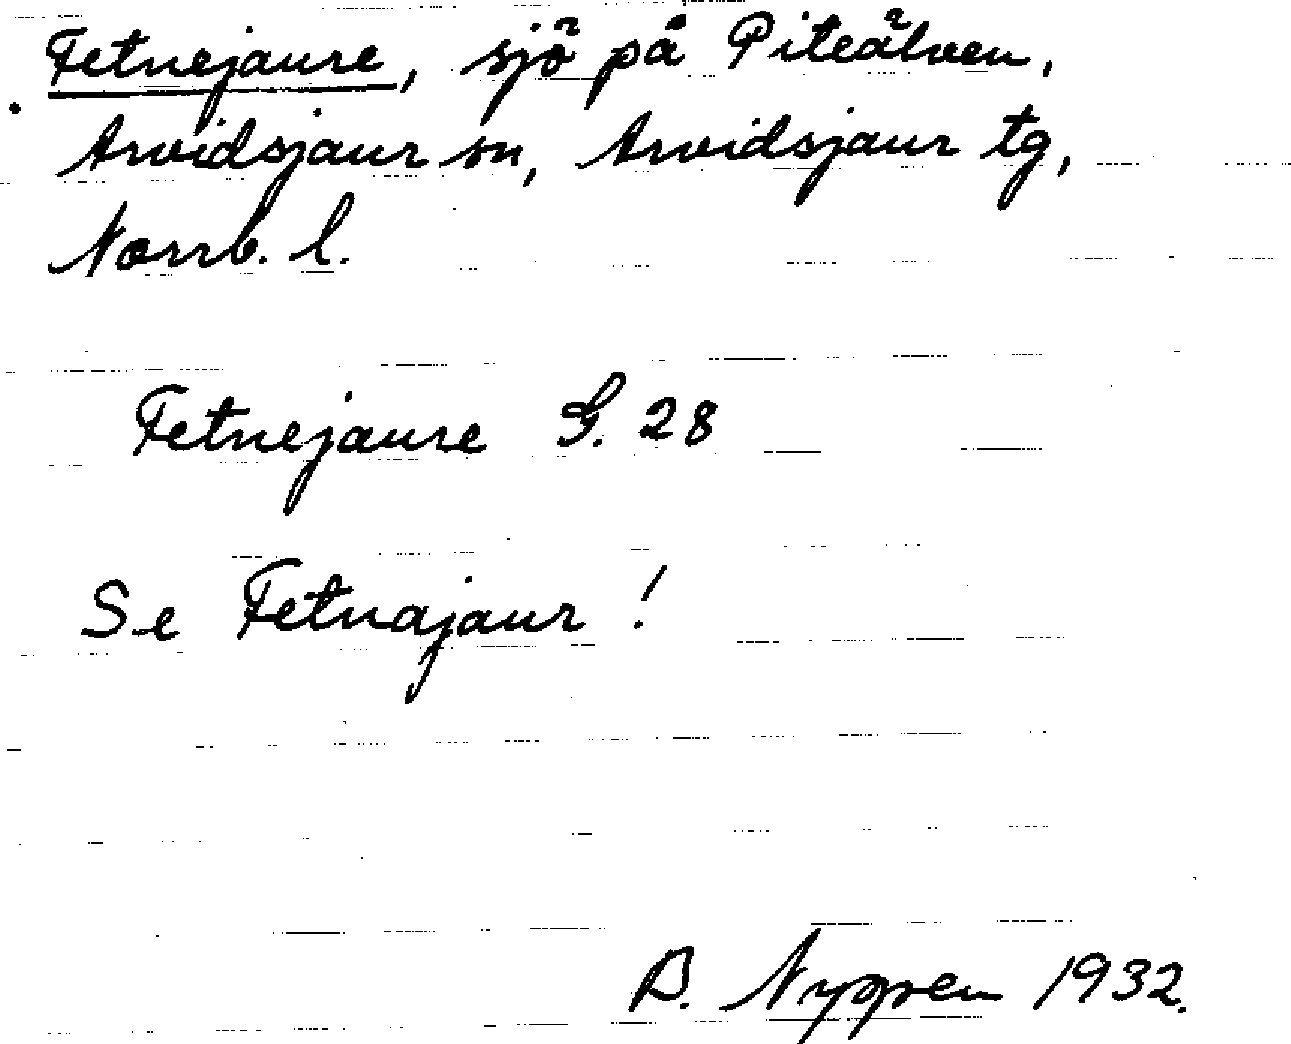 Fetnejaure, sjö på Piteälven,
Arvidsjaur sn, Arvidsjaur tg,
Norrb. l.
Fetnejaure G. 28
Se Fetnajaur!
B. Nygren 1932.